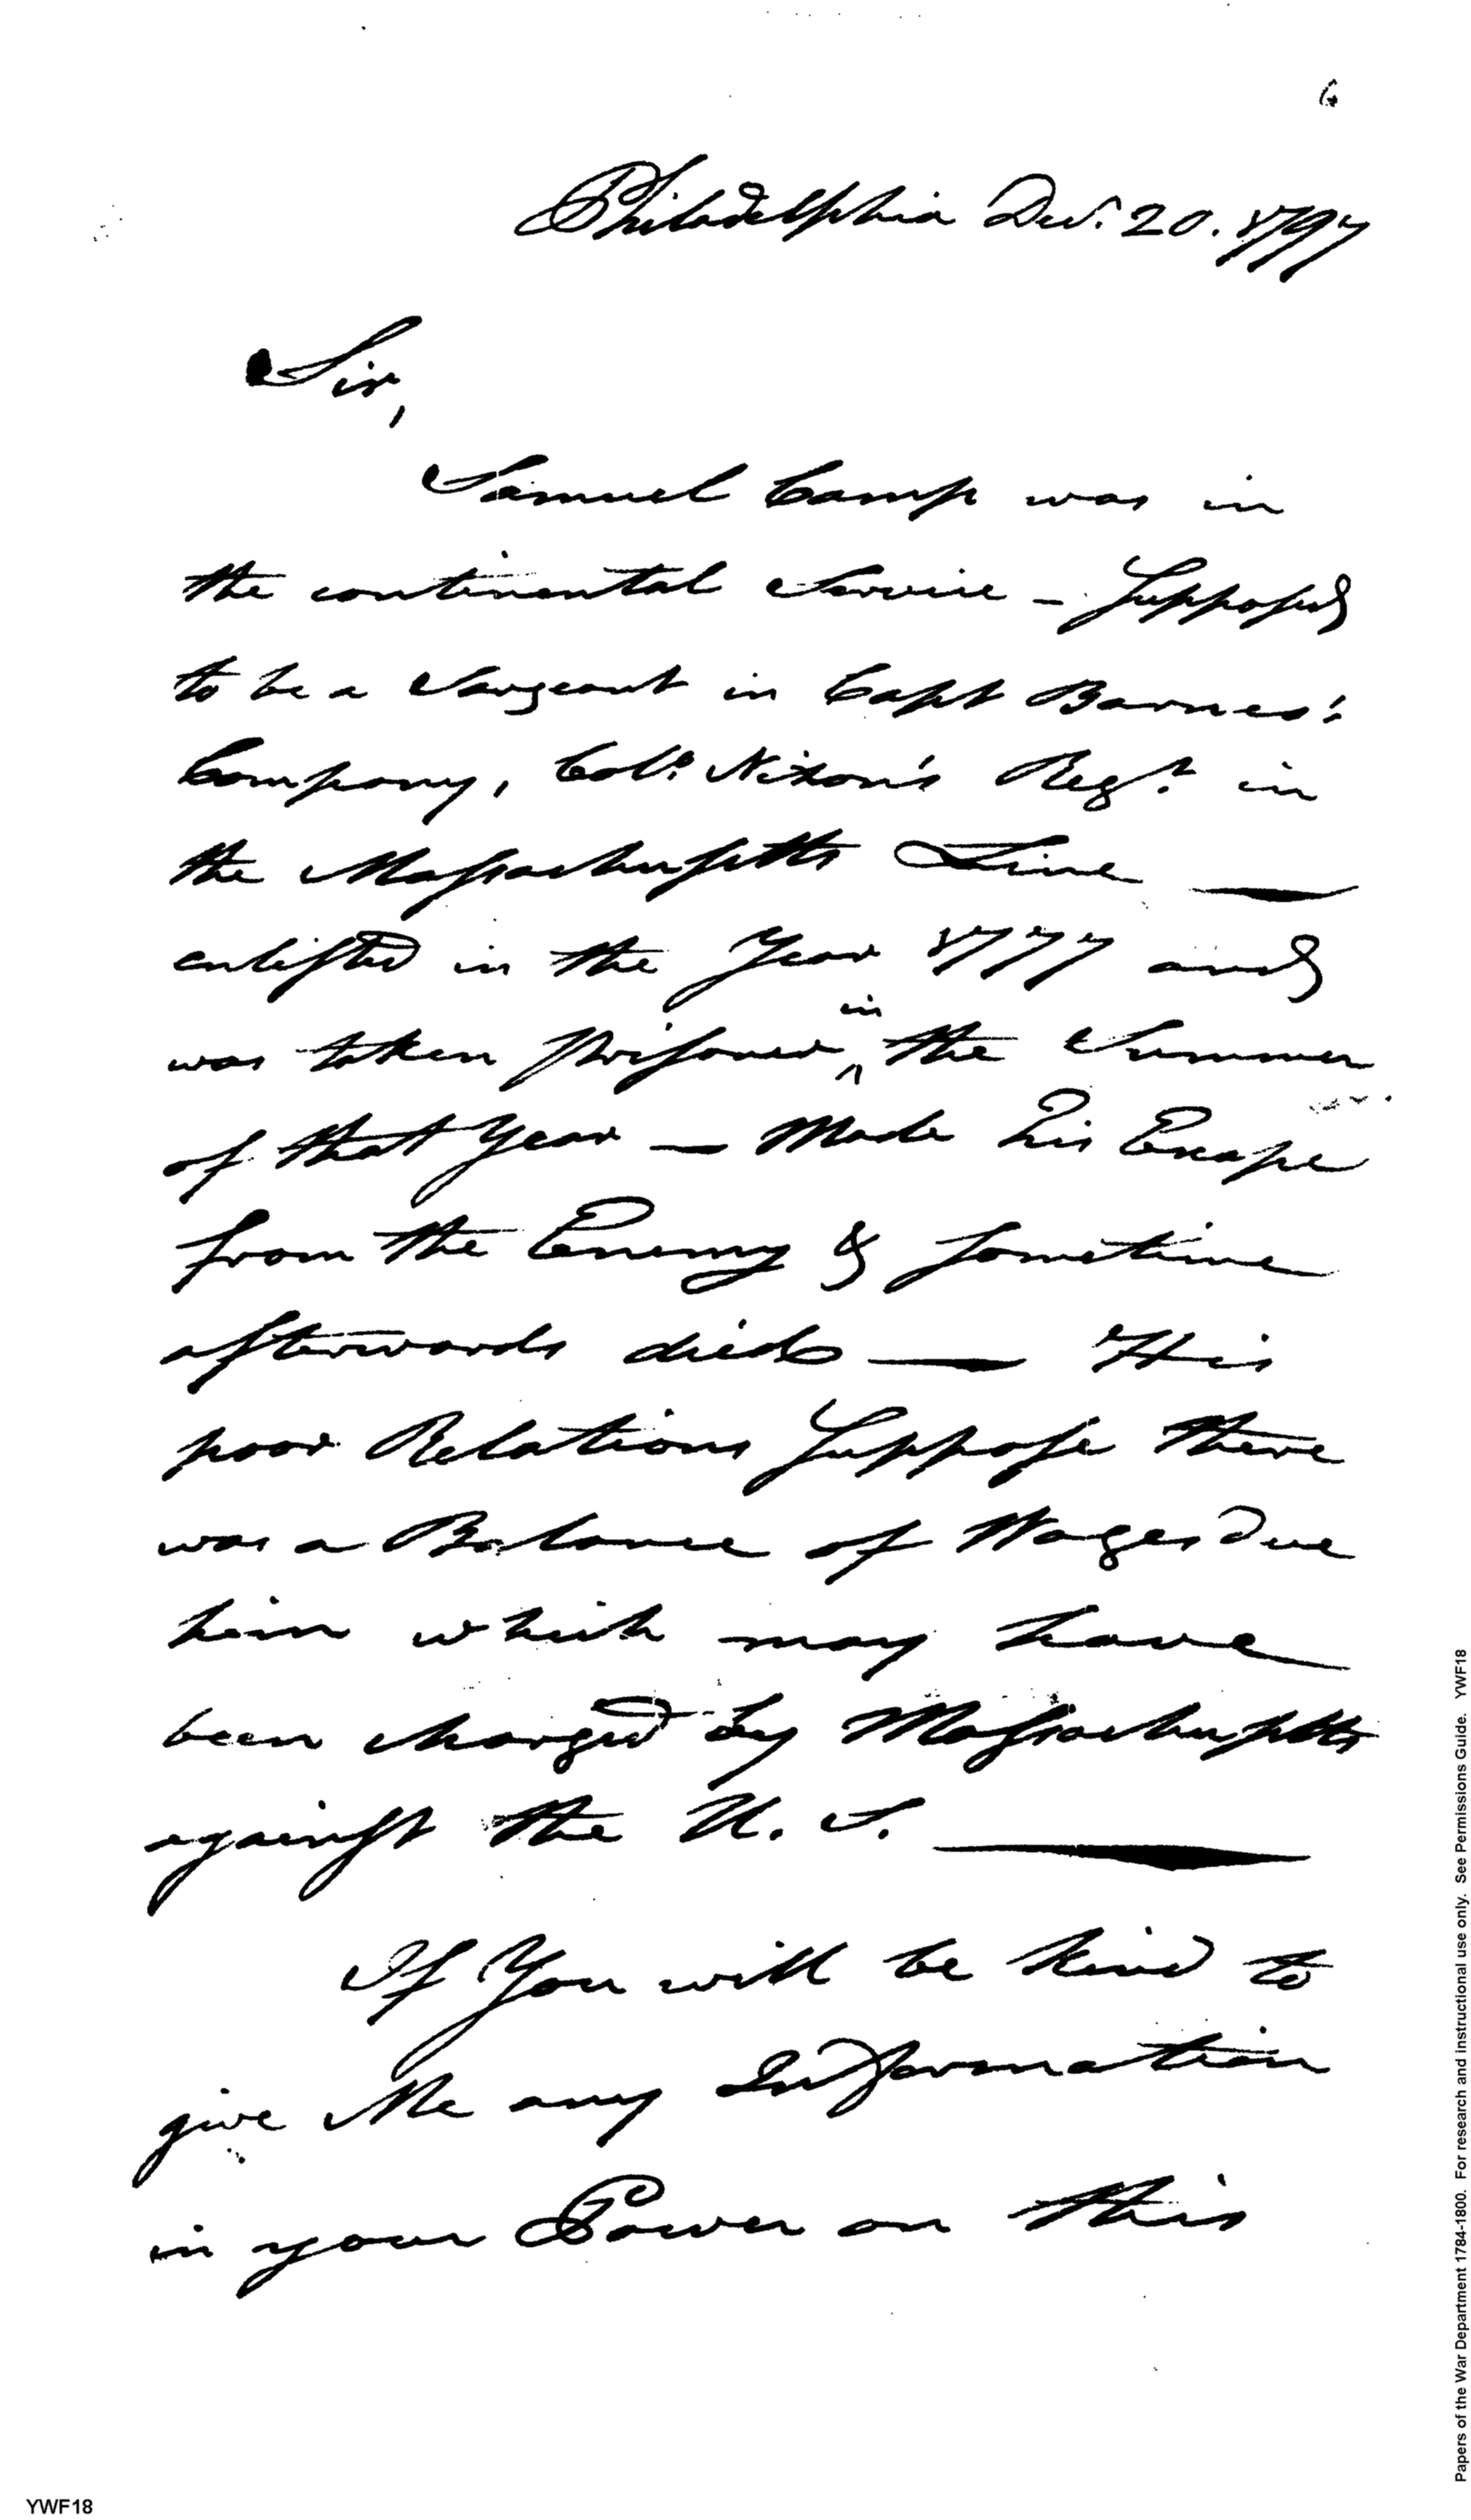 6
Philadelphia Decr. 20. 1797
Sir,
Samuel Camp was in
the continental Service - Supposed
to be a Sargeant in Capt Barnes:
Company, Colo. Nixon's Regt. in
the Massachusetts Line —
enlisted in the Year 1777 and
in
was taken prisoner ^ the Summer
of that Year — Made his Escape
from the Enemy & sometime
afterwards died — His
poor Relations Suppose there
was a Balance of Wages Due
him which may have
been charged by Massachusetts
against the U. S. —
If You will be kind to
give Me any Information
in your Power on this
Papers of the War Department 1784-1800. For research and instructional use only. See Permissions Guide. YWF18
YWF18